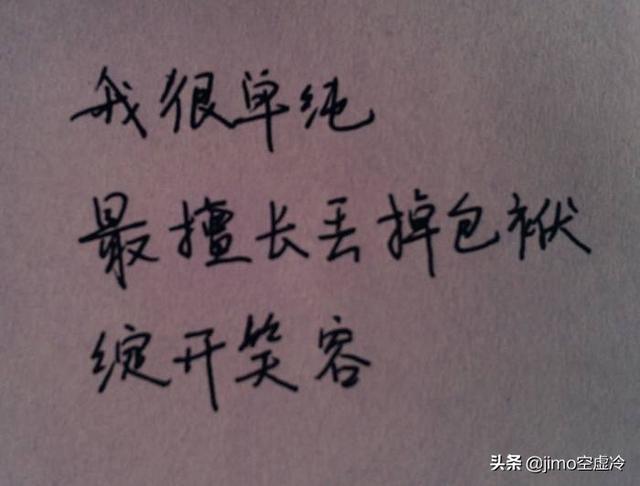 我很单纯
最擅长丢掉包袱
绽开笑容
头条 @jimo空虚冷